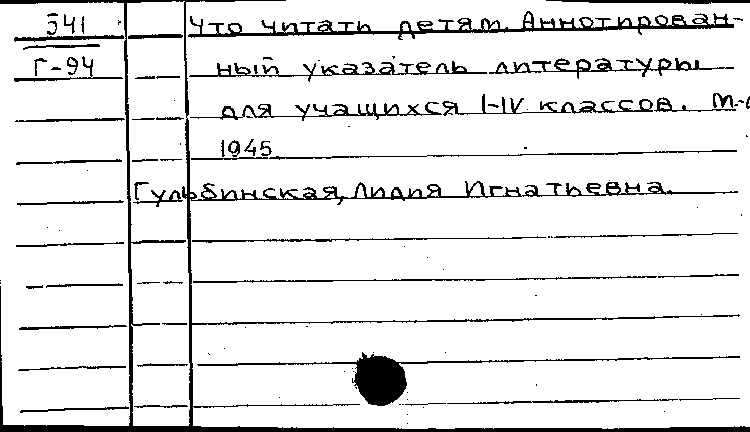 541 Что читать детям. Аннотирован-
Г-94 ный указатель литературы
для учащихся I-IV классов. М-
1945
Гульбинская, Лидия Игнатьевна.